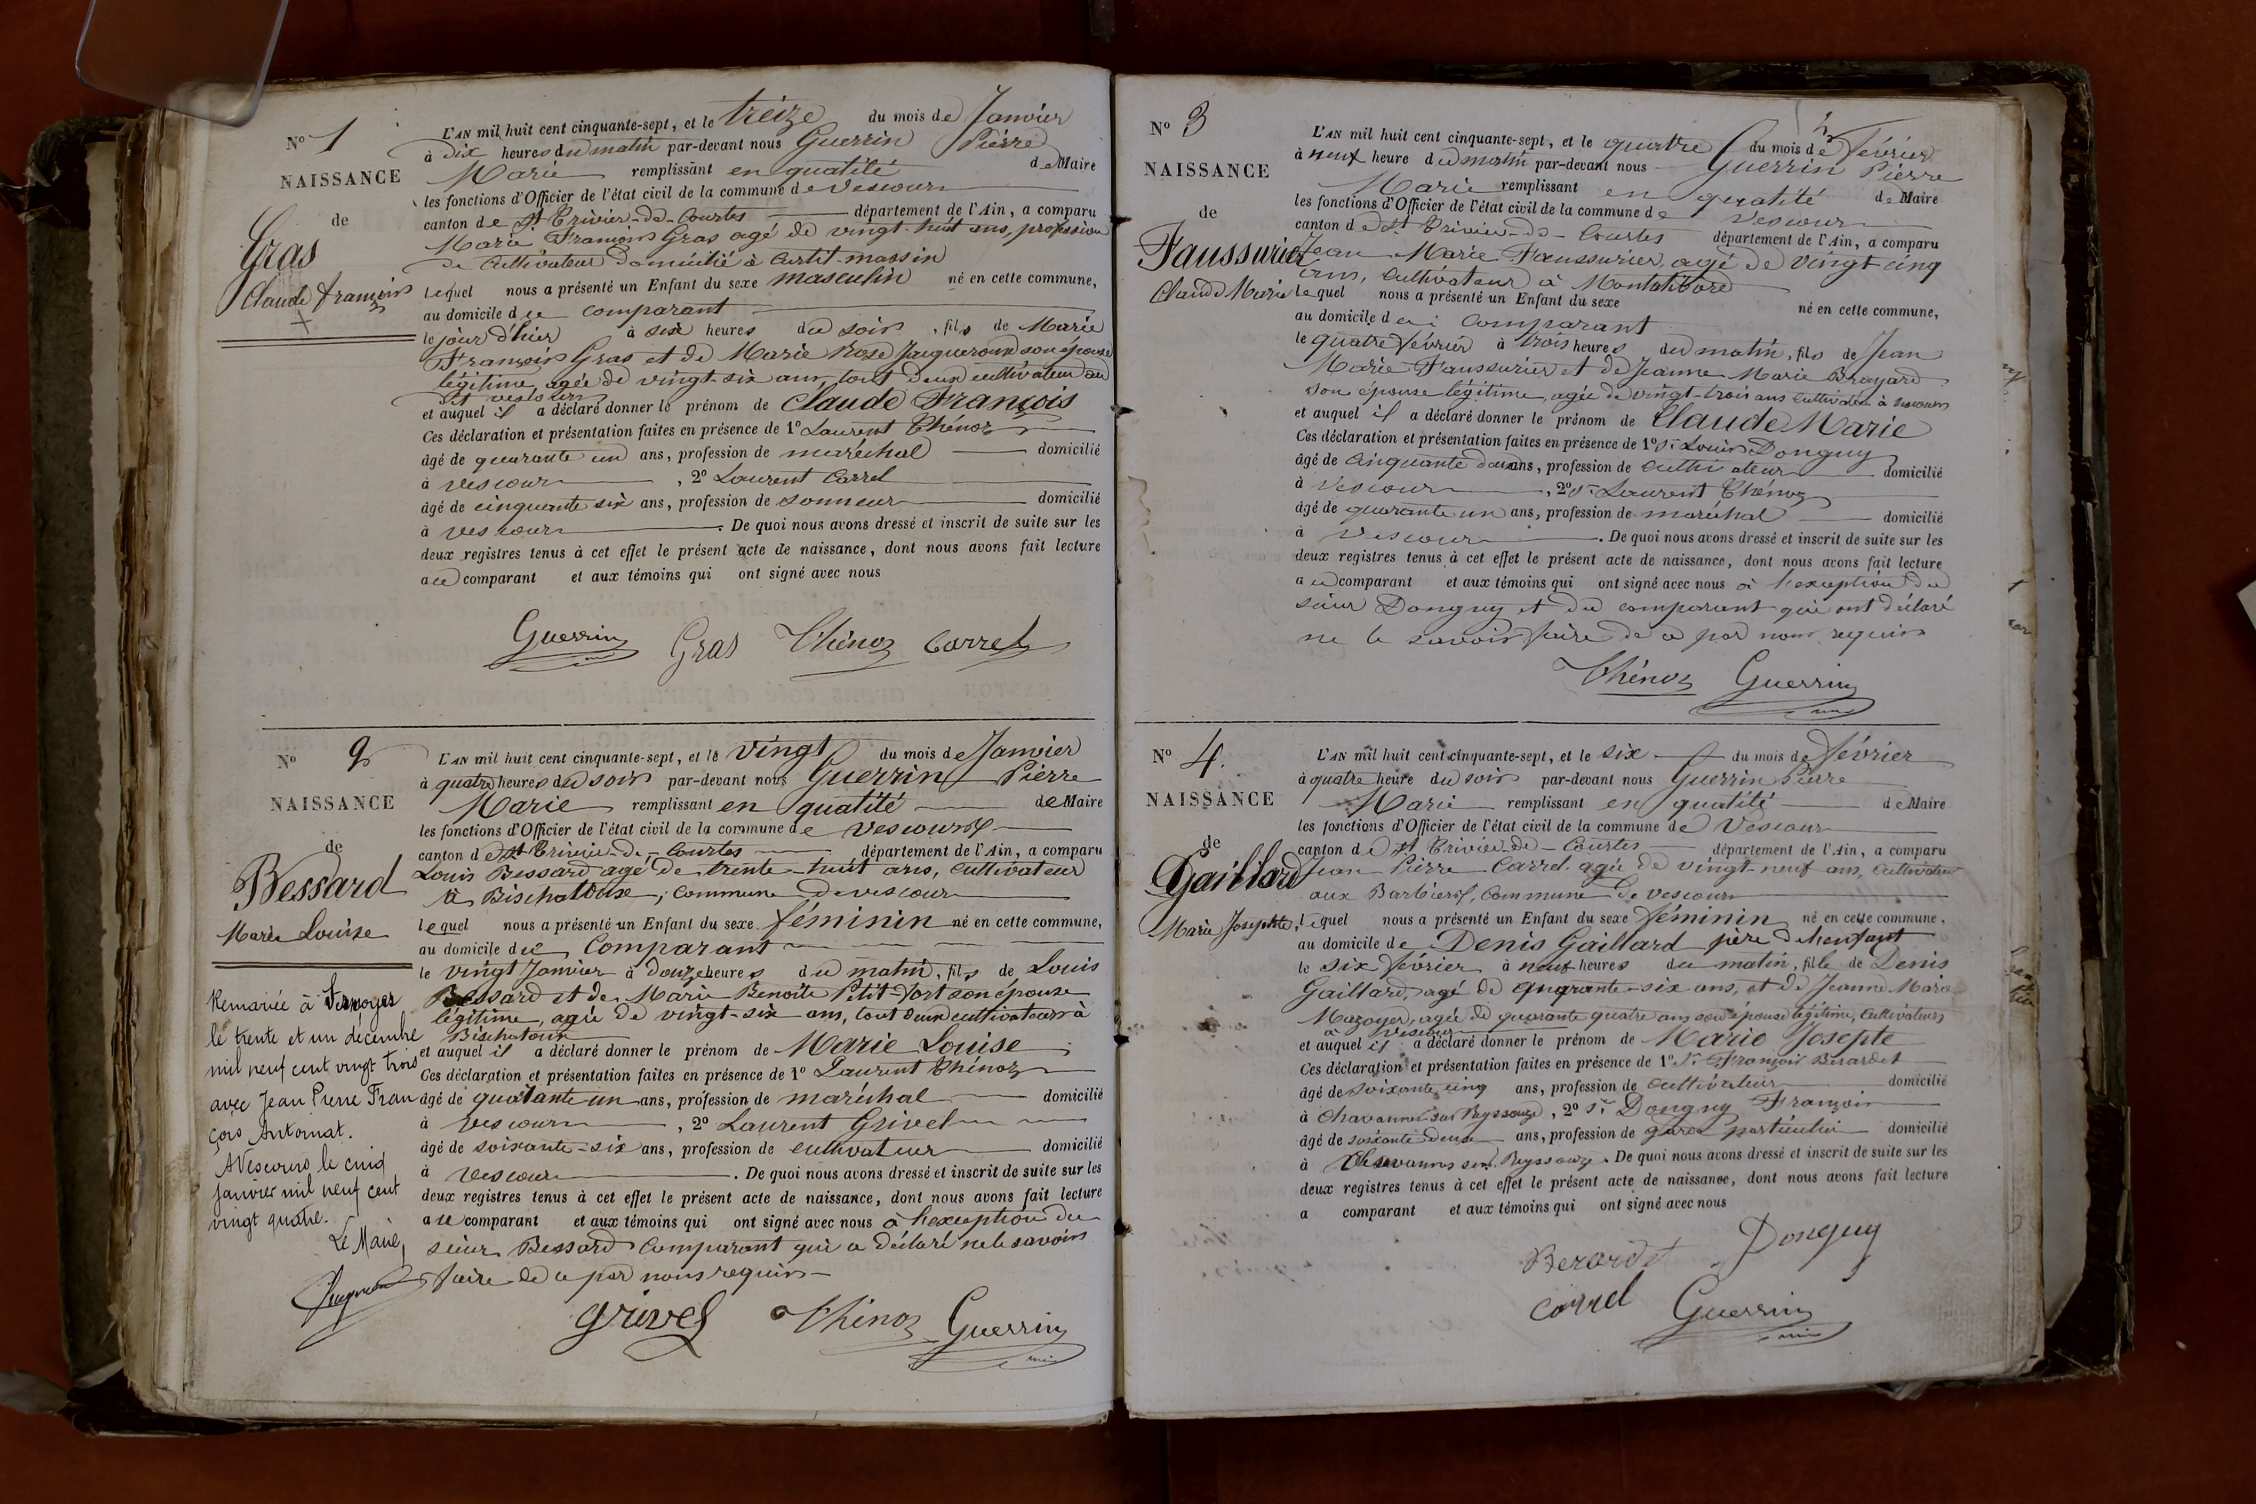 No 1
NAISSANCE
de
Gras
Claude François
L'AN mil huit cent cinquante-sept, et le treize du mois de Janvier
à dix heures du matin par-devant nous Guerrin Pierre
Marie remplissant en qualité de Maire
les fonctions d'Officier de l'état civil de la commune de Vescours
canton de St Trivier-de-Courtes département de l'Ain, a comparu
Marie François Gras agé de vingt-huit ans, profession
de Cultivateur domicilié à Curtit-massin
lequel nous a présenté un Enfant du sexe masculin né en cette commune,
au domicile du comparant
le jour d'hier à six heures du soir, fils de Marie
François Gras et de Marie Rose Jacqueroux son épouse
légitime, agée de vingt-six ans, tout deux cultivateur au
dit vescours
et auquel il a déclaré donner le prénom de Claude François
Ces déclaration et présentation faites en présence de 1º Laurent Thénoz
âgé de quarante un ans, profession de maréchal domicilié
à vescours, 2º Laurent Carrel
âgé de cinquante six ans, profession de sonneur domicilié
à vescours. De quoi nous avons dressé et inscrit de suite sur les
deux registres tenus à cet effet le présent acte de naissance, dont nous avons fait lecture
au comparant et aux témoins qui ont signé avec nous
Guerrin Gras Thénoz Carrel
No 2
NAISSANCE
de
Bessard
Marie Louise
Remariée à Vernoyer
le trente et un décembre
mil neuf cent vingt trois
avec Jean Pierre Fran
çois Antornat.
A Vescours le cinq
janvier mil neuf cent
vingt quatre.
Le Maire,
L'AN mil huit cent cinquante-sept, et le vingt du mois de Janvier
à quatre heures du soir par-devant nous Guerrin Pierre
Marie remplissant en qualité de Maire
les fonctions d'Officier de l'état civil de la commune de Vescours
canton de St Trivier-de-Courtes département de l'Ain, a comparu
Louis Bessard agé de trente-huit ans, cultivateur
à Bischatoux, commune de vescours
lequel nous a présenté un Enfant du sexe féminin né en cette commune,
au domicile du Comparant
le vingt Janvier à douze heures du matin, fils de Louis
Bessard et de Marie Benoite Petit-Jort son épouse
légitime, agée de vingt-six ans, tout deux cultivateurs à
Bischatoux
et auquel il a déclaré donner le prénom de Marie Louise
Ces déclaration et présentation faites en présence de 1º Laurent Thénoz
âgé de quarante un ans, profession de maréchal domicilié
à vescours, 2º Laurent Grivel
âgé de soixante-six ans, profession de cultivateur domicilié
à vescours. De quoi nous avons dressé et inscrit de suite sur les
deux registres tenus à cet effet le présent acte de naissance, dont nous avons fait lecture
au comparant et aux témoins qui ont signé avec nous à l'exception du
sieur Bessard Comparant qui a déclaré ne le savoir
faire de ce par nous requis
Grivel Thénoz Guerrin
No 3
NAISSANCE
de
Faussurier
Claude Marie
L'AN mil huit cent cinquante-sept, et le quatre du mois de février
à neuf heure du matin par-devant nous Guerrin Pierre
Marie remplissant en qualité de Maire
les fonctions d'Officier de l'état civil de la commune de Vescours
canton de St Trivier-de-Courtes département de l'Ain, a comparu
Jean Marie Faussurier, agé de vingt cinq
ans, cultivateur à Montalibord
lequel nous a présenté un Enfant du sexe né en cette commune,
au domicile du comparant
le quatre février à trois heures du matin, fils de Jean
Marie Faussurier et de Jeanne Marie Brayard
son épouse légitime, agée de vingt-trois ans cultivateur à vescours
et auquel il a déclaré donner le prénom de Claude Marie
Ces déclaration et présentation faites en présence de 1º Sr Louis Donguy
âgé de cinquante deux ans, profession de cultivateur domicilié
à vescours, 2º Sr Laurent Thénoz
âgé de quarante un ans, profession de maréchal domicilié
à vescours. De quoi nous avons dressé et inscrit de suite sur les
deux registres tenus à cet effet le présent acte de naissance, dont nous avons fait lecture
au comparant et aux témoins qui ont signé avec nous à l'exception du
sieur Donguy et du comparant qui ont déclaré
ne le savoir faire de ce par nous requis
Thénoz Guerrin
No 4.
NAISSANCE
de
Gaillard
Marie Josephte.
L'AN mil huit cent cinquante-sept, et le six du mois de février
à quatre heure du soir par-devant nous Guerrin Pierre
Marie remplissant en qualité de Maire
les fonctions d'Officier de l'état civil de la commune de Vescours
canton de St Trivier-de-Courtes département de l'Ain, a comparu
Jean Pierre Carrel agé de vingt-neuf ans, cultivateur
aux Barbiers, commune de vescours
lequel nous a présenté un Enfant du sexe féminin né en cette commune,
au domicile de Denis Gaillard père de l'enfant
le six février à neuf heures du matin, fille de Denis
Gaillard, agé de quarante-six ans, et de Jeanne Marie
Mazoyer, agée de quarante quatre ans son épouse légitime, cultivateurs
à vescours
et auquel il a déclaré donner le prénom de Marie Josepte
Ces déclaration et présentation faites en présence de 1º Sr François Berardet
âgé de soixante cinq ans, profession de cultivateur domicilié
à Chavannes sur Reyssouze, 2º Sr Donguy François
âgé de soixante deux ans, profession de garde particulier domicilié
à Chavannes sur Reyssouze. De quoi nous avons dressé et inscrit de suite sur les
deux registres tenus à cet effet le présent acte de naissance, dont nous avons fait lecture
a comparant et aux témoins qui ont signé avec nous
Berardet Donguy
Carrel Guerrin